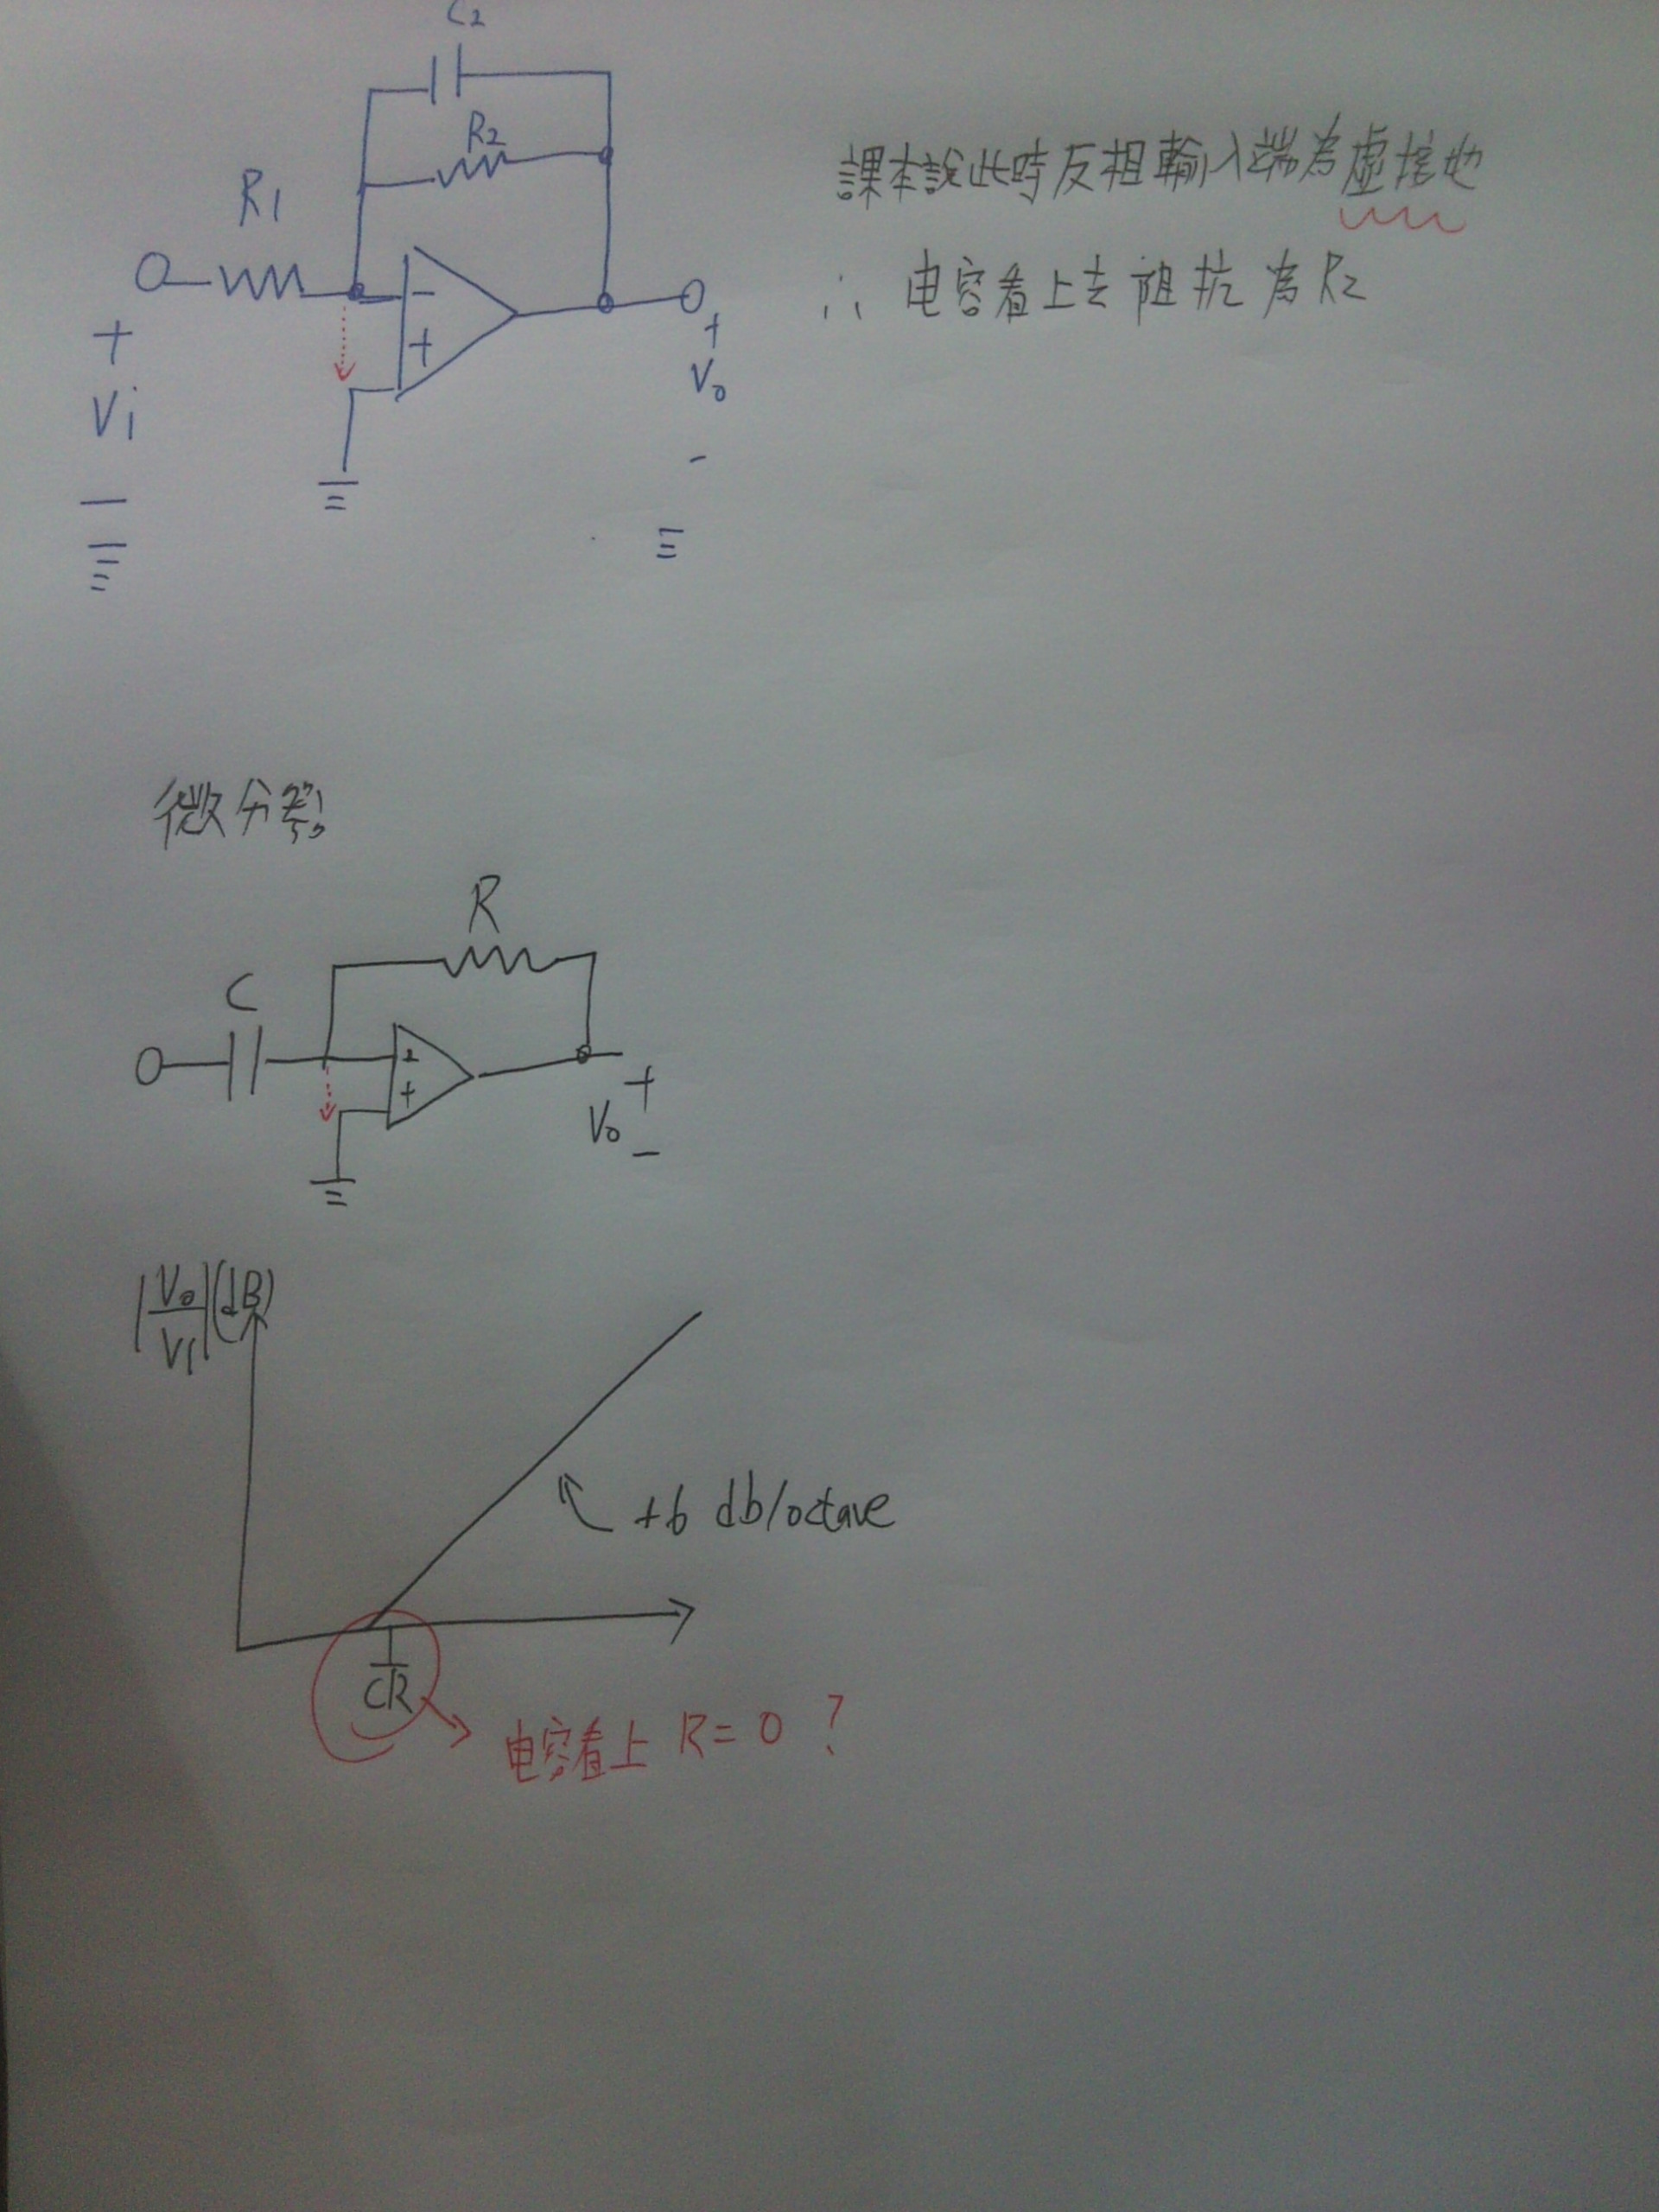 C2
R2
R1
課本說此時反相輸入端為虛接地
∴ 电容看上去阻抗為R2
-
+
+
Vi
-
+
Vo
-
微分器
R
C
-
+
+
Vo
-
|Vo/Vi|(dB)
+6 db/octave
1/CR
电容看上 R=0 ?